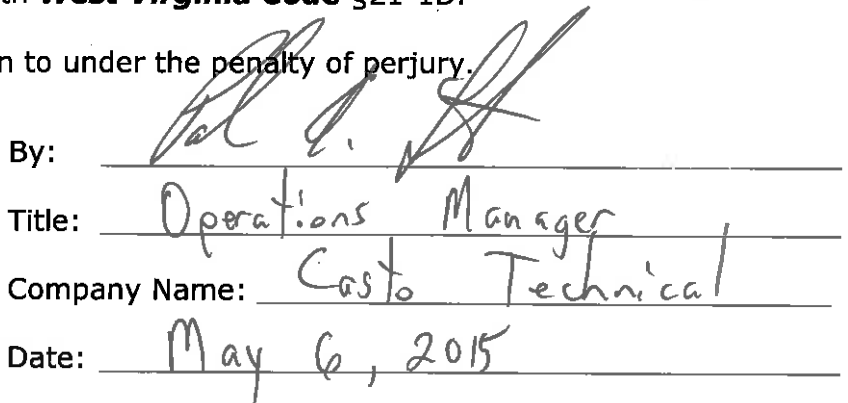 West Virginia Code §21-1D.
n to under the penalty of perjury.
By:
Title: Operations Manager
Company Name: Casto Technical
Date: May 6, 2015